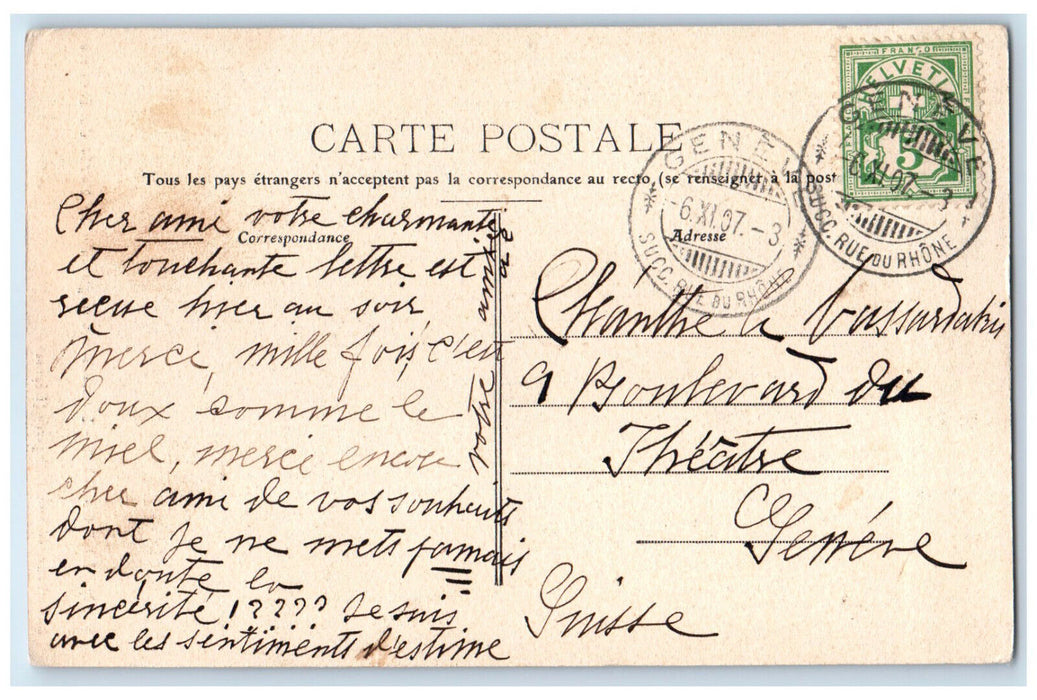 CARTE POSTALE
Tous les pays étrangers n'acceptent pas la correspondance au recto, (se renseigner à la post
Correspondance
Adresse
FRANCO
HELVETIA
5
GENÈVE
-6.XI.07.-3
SUCC. RUE DU RHÔNE
GENÈVE
-6.XI.07.-3
SUCC. RUE DU RHÔNE
Cher ami votre charmante
et touchante lettre est
reçue hier au soir
Merci, mille fois, c'est
doux comme le
miel, merci encore
cher ami de vos souhaits
dont je ne mets jamais
en doute la
sincérité !???? Je suis
avec les sentiments d'estime
votre amie
a
9 Boulevard du
Théâtre
Genève
Suisse